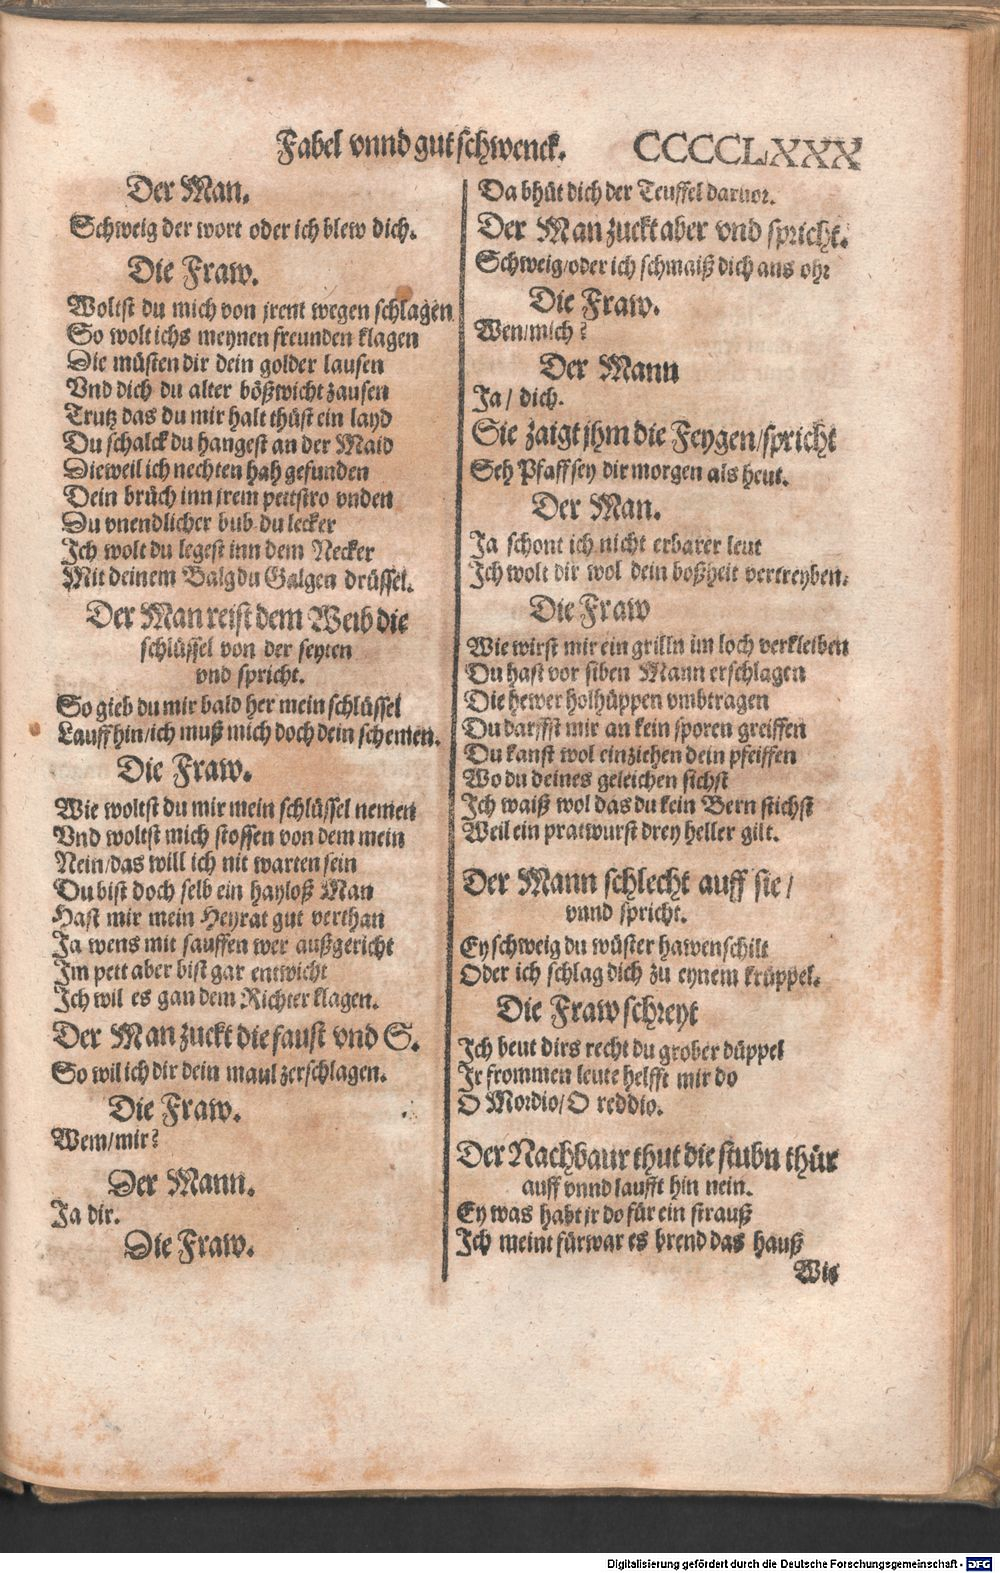 Fabel vnnd gut schwenck. CCCCCLXXX
Der Man.
Schweig der wort oder ich blew dich.
Die Fraw.
Woltst du mich von jrent wegen schlagen
So wolt ichs meynen freunden klagen
Die müsten dir dein golder lausen
Vnd dich du alter bößwicht zausen
Trutz das du mir halt thüst ein layd
Du schalck du hangest an der Maid
Dieweil ich nechten hab gefunden
Dein brüch inn jrem pettstro vnden
Du vnendlicher bub du lecker
Ich wolt du legest inn dem Necker
Mit deinem Balg du Galgen drüssel.
Der Man reist dem Weib die
schlüssel von der seyten
vnd spricht.
So gieb du mir bald her mein schlüssel
Lauff hin/ich muß mich doch dein schemen.
Die Fraw.
Wie woltst du mir mein schlüssel nemen
Vnd woltst mich stossen von dem mein
Nein/das will ich nit warten sein
Du bist doch selb ein hayloß Man
Hast mir mein Heyrat gut verthan
Ja wens mit sauffen wer außgericht
Im pett aber bist gar entwicht
Ich wil es gan dem Richter klagen.
Der Man zuckt die faust vnd S.
So wil ich dir dein maul zerschlagen.
Die Fraw.
Wem/mir?
Der Mann.
Ja dir.
Die Fraw.
Da bhüt dich der Teuffel daruor.
Der Man zuckt aber vnd spricht.
Schweig/oder ich schmaiß dich ans ohr
Die Fraw.
Wen/mich?
Der Mann
Ja/ dich.
Sie zaigt jhm die Feygen/spricht
Seh Pfaff sey dir morgen als heut.
Der Man.
Ja schont ich nicht erbarer leut
Ich wolt dir wol dein boßheit vertreyben.
Die Fraw
Wie wirst mir ein grilln im loch verkleiben
Du hast vor siben Mann erschlagen
Die hewer holhüppen vmbtragen
Du darffst mir an kein sporen greiffen
Du kanst wol einziehen dein pfeiffen
Wo du deines geleichen sichst
Ich waiß wol das du kein Bern stichst
Weil ein pratwurst drey heller gilt.
Der Mann schlecht auff sie/
vnnd spricht.
Ey schweig du wüster hawenschilt
Oder ich schlag dich zu eynem krüppel.
Die Fraw schreyt
Ich beut dirs recht du grober düppel
Ir frommen leute helfft mir do
O Mordio/O reddio.
Der Nachbaur thut die stubn thür
auff vnnd laufft hin nein.
Ey was habt jr do für ein strauß
Ich meint fürwar es brend das hauß
Wie
Digitalisierung gefördert durch die Deutsche Forschungsgemeinschaft - DFG